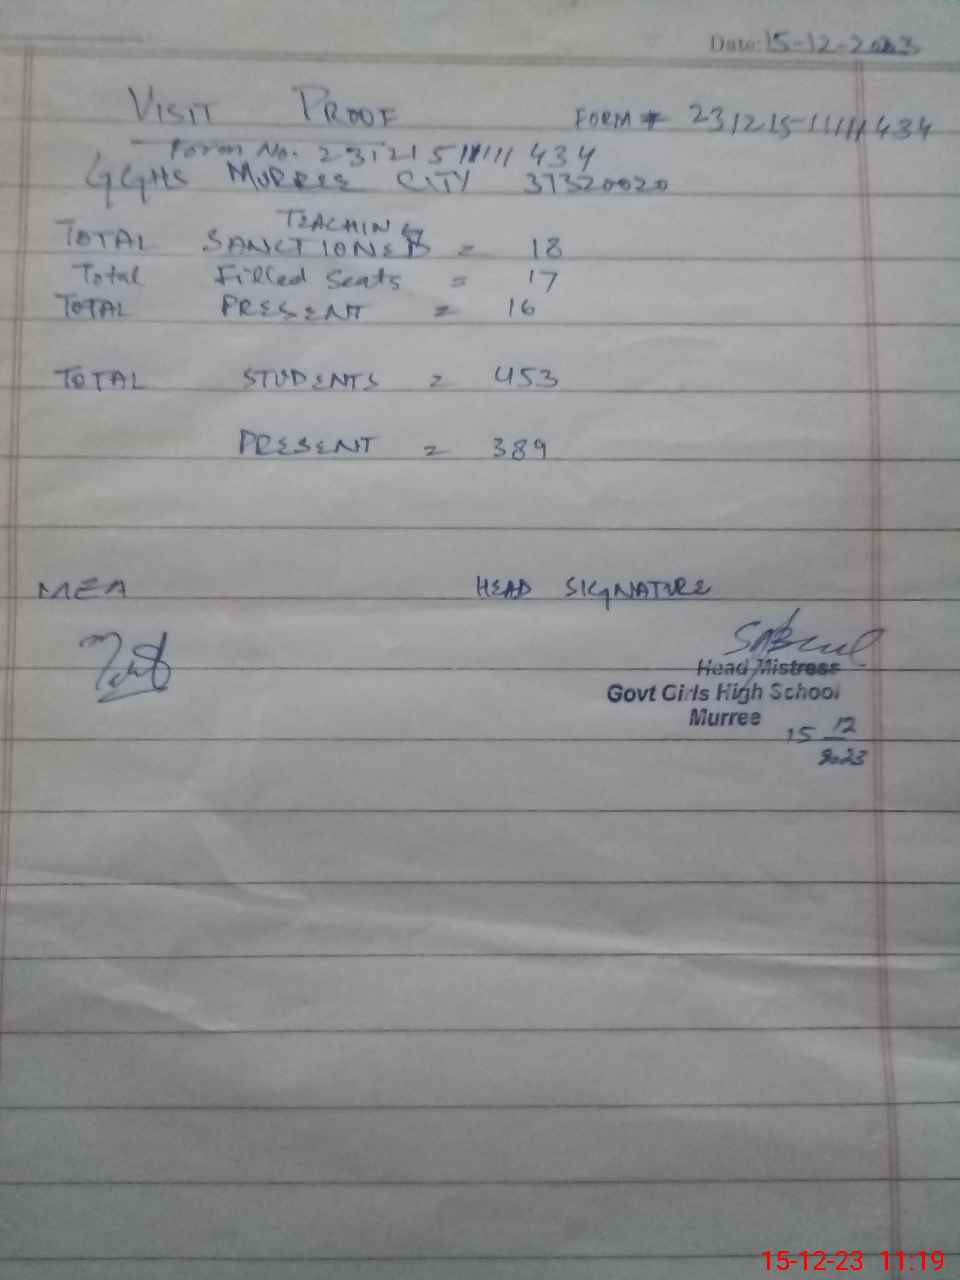 Date: 15-12-2023
VISIT PROOF FORM # 23121511111434
Form No. 23121511111434
GGHS MURREE CITY 37320020
TEACHING
TOTAL SANCTIONED = 18
Total Filled Seats = 17
TOTAL PRESENT = 16
TOTAL STUDENTS = 453
PRESENT = 389
MEA HEAD SIGNATURE
Head Mistress
Govt Girls High School
Murree
15 12
2023
15-12-23 11:19